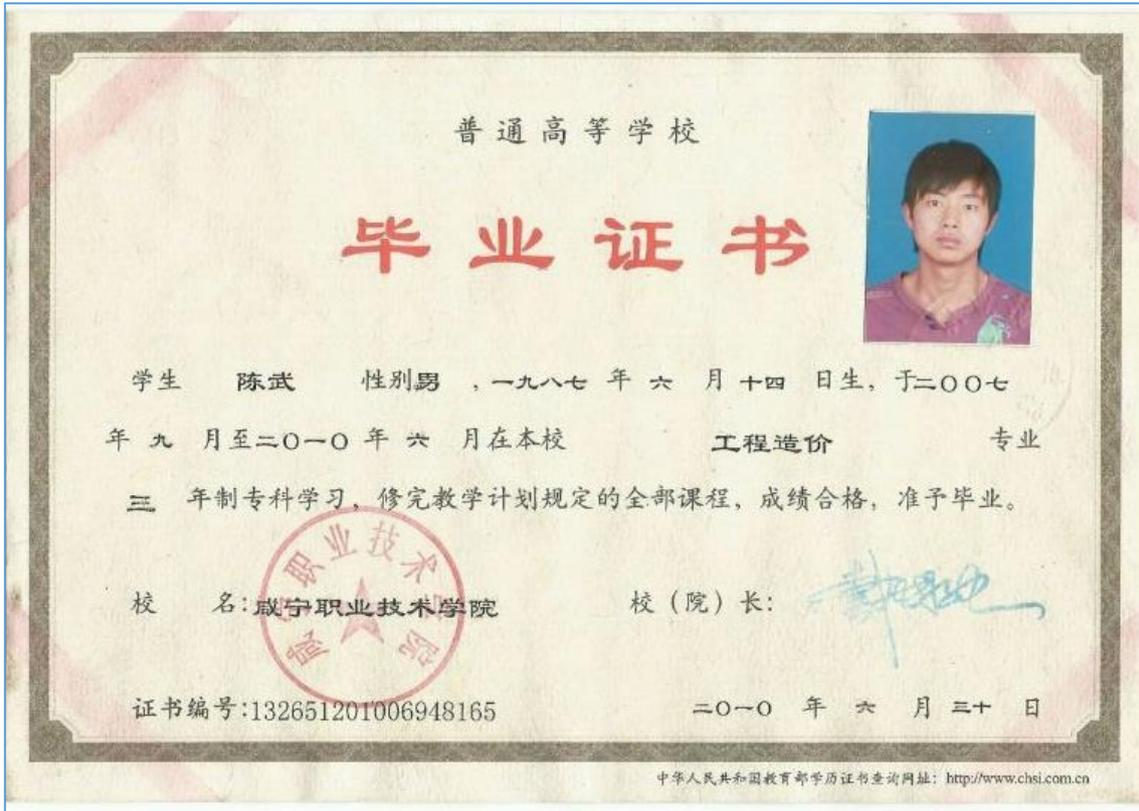 普通高等学校
毕业证书
学生 陈武 性别男 ，一九八七 年 六 月 十四 日生，于二00七
年 九 月至二0一0 年 六 月在本校 工程造价 专业
三 年制专科学习，修完教学计划规定的全部课程，成绩合格，准予毕业。
咸宁职业技术学院
校 名：咸宁职业技术学院 校（院）长：
证书编号：132651201006948165 二0一0 年 六 月 三十 日
中华人民共和国教育部学历证书查询网址：http://www.chsi.com.cn